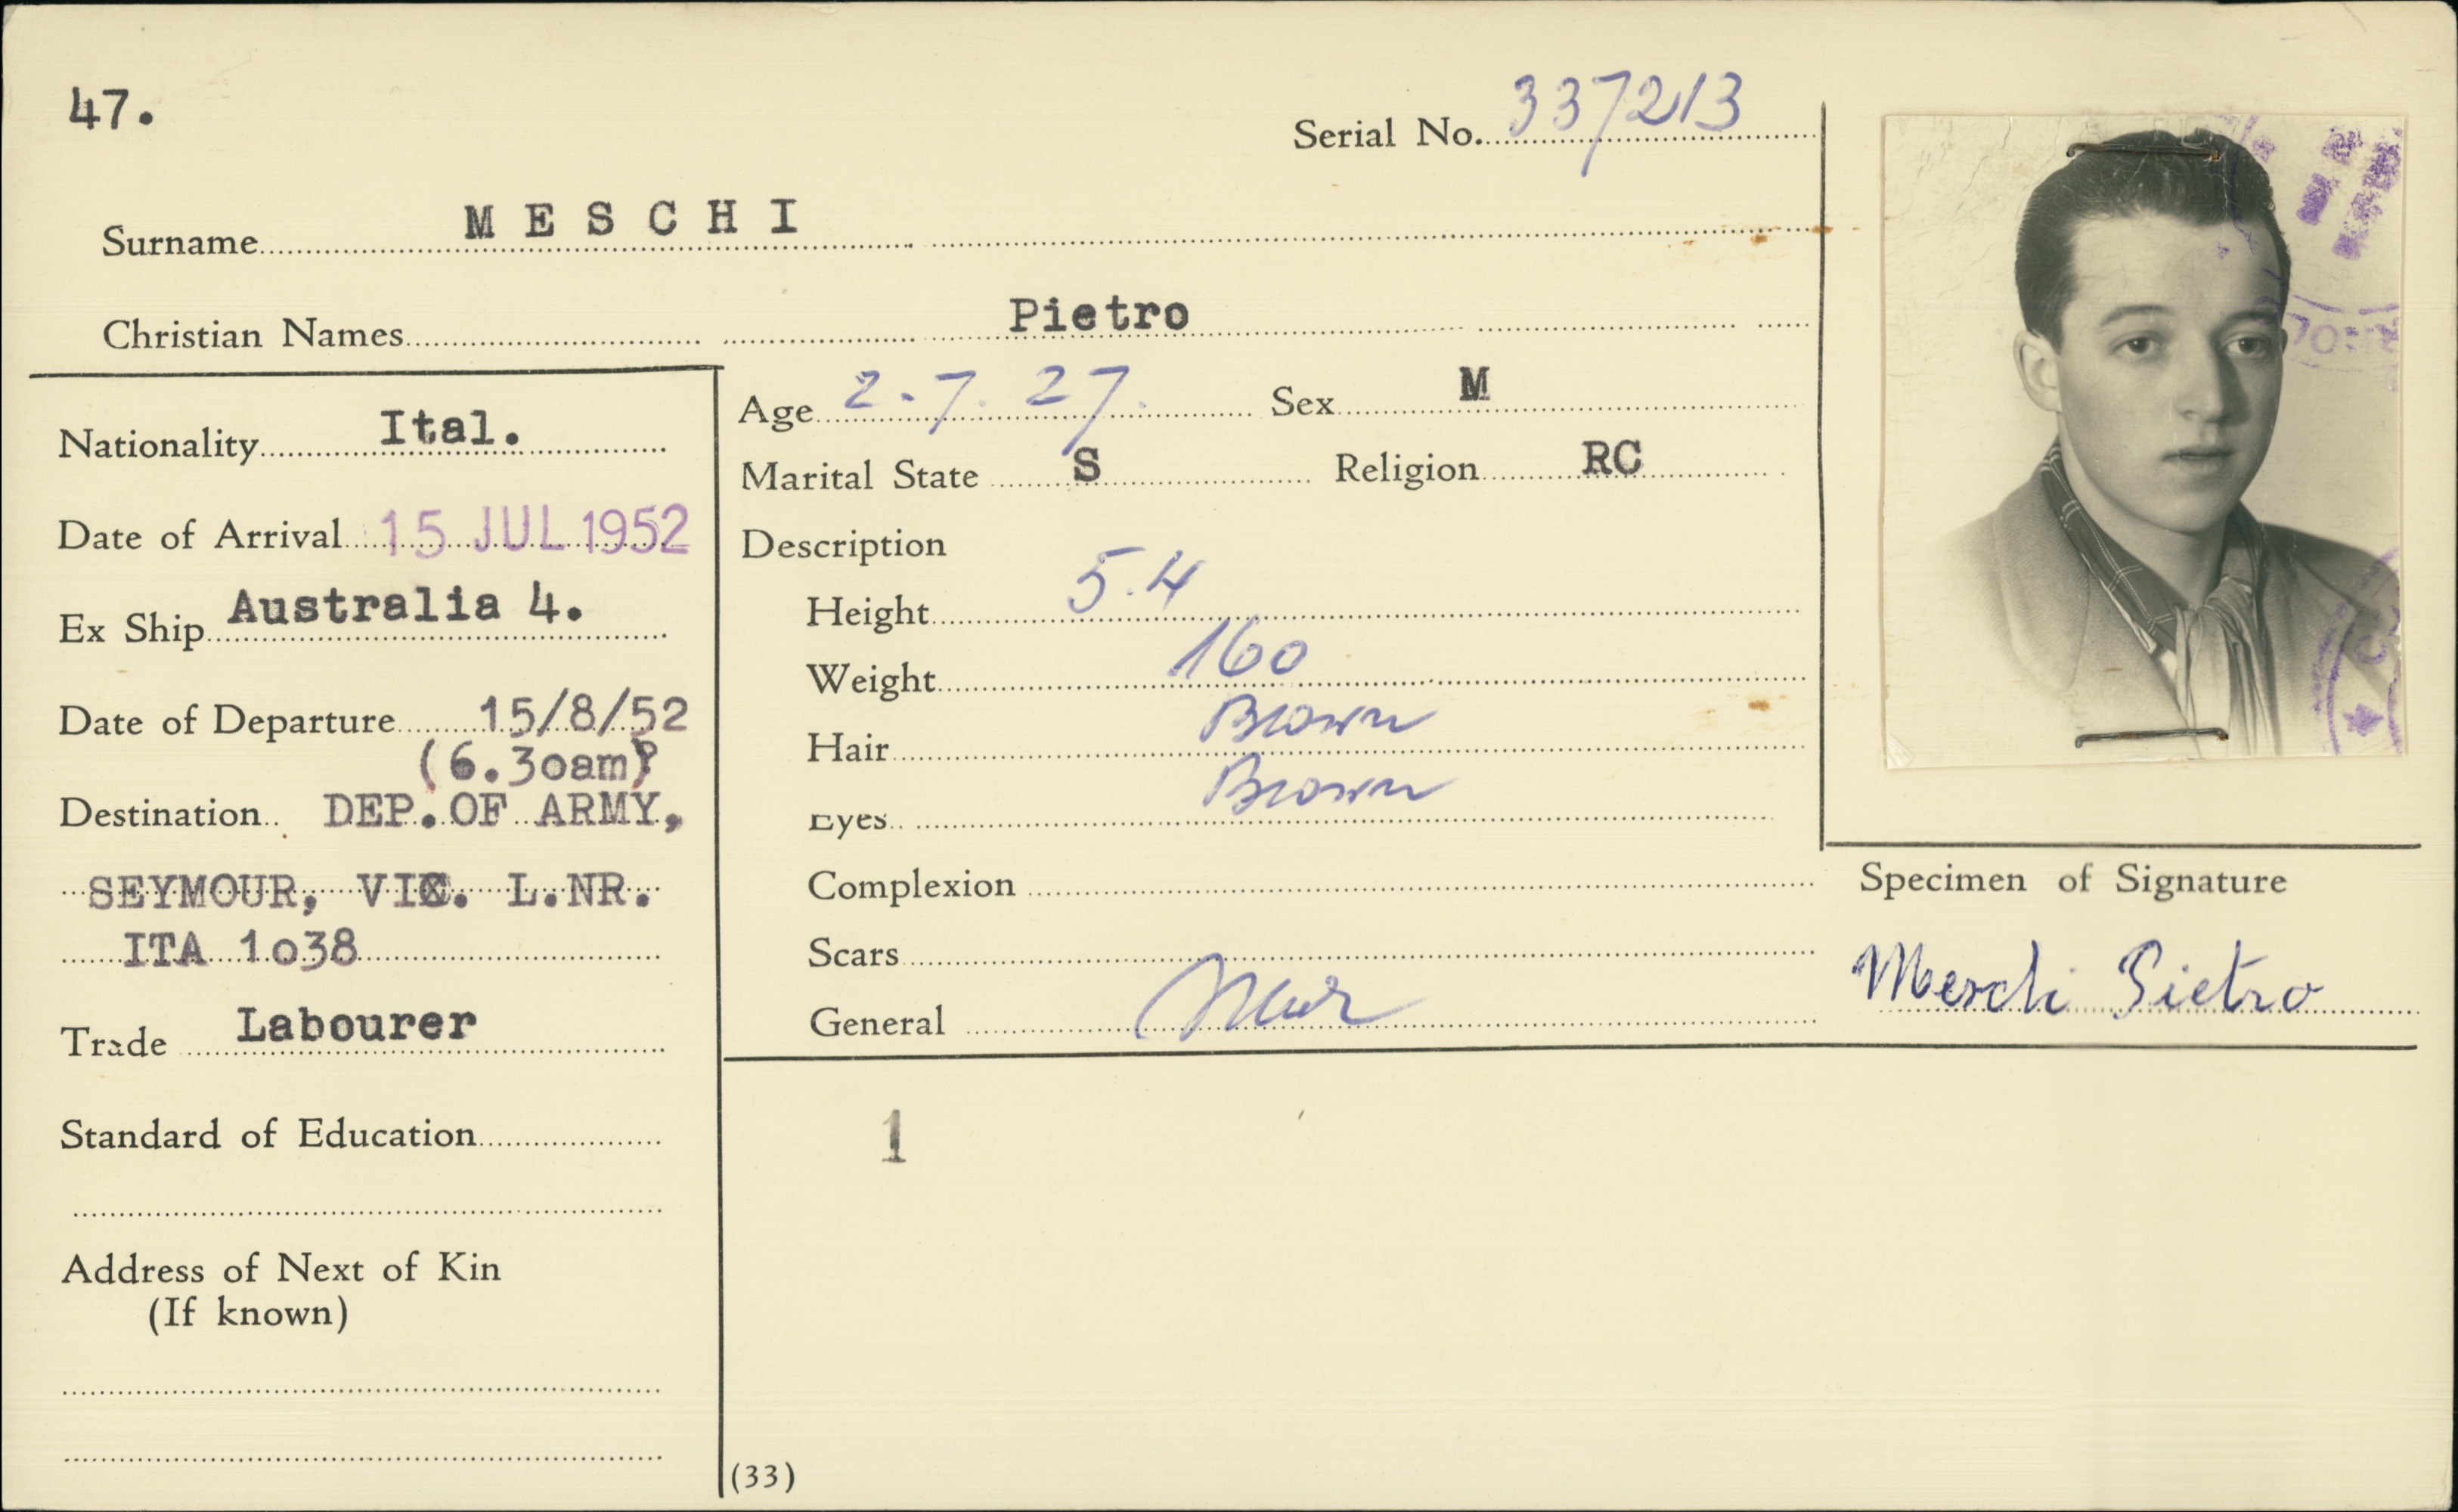 47.
Serial No. 337213
Surname MESCHI
Christian Names Pietro
Nationality Ital.
Date of Arrival 15 JUL 1952
Ex Ship Australia 4.
Date of Departure 15/8/52
(6.3oam)
Destination DEP. OF ARMY,
SEYMOUR, VIC. L.NR.
ITA 1o38
Trade Labourer
Standard of Education
Address of Next of Kin
(If known)
Age 2.7.27. Sex M
Marital State S Religion RC
Description
Height 5.4
Weight 160
Hair Brown
Eyes Brown
Complexion
Scars
General
1
(33)
Specimen of Signature
Meschi Pietro